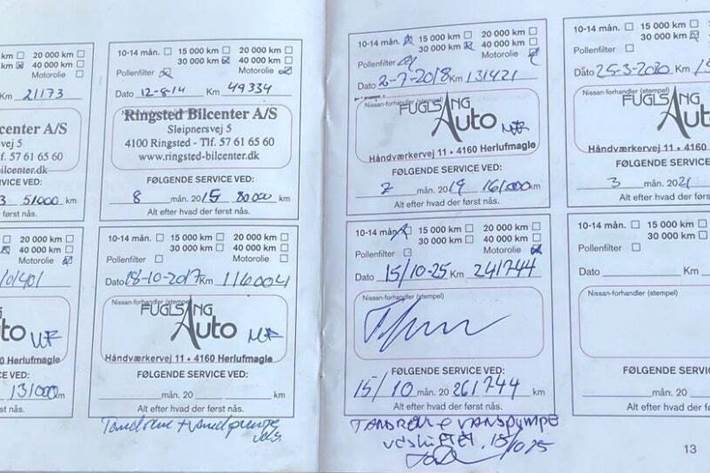 20 000 km
km 40 000 km
Motorolie
Km 21173
center A/S
vej 5
f. 57 61 65 60
ilcenter.dk
E SERVICE VED:
51000 km
er først nås.
20 000 km
40 000 km
Motorolie
101401
to MF
60 Herlufmagle
CE VED:
131000 km
st nås.
10-14 mån. 15 000 km 20 000 km
30 000 km 40 000 km
Pollenfilter Motorolie
Dato 12-8-14 Km 49334
Ringsted Bilcenter A/S
Sleipnersvej 5
4100 Ringsted - Tlf. 57 61 65 60
www.ringsted-bilcenter.dk
FØLGENDE SERVICE VED:
8 mån. 2015 80000 km
Alt efter hvad der først nås.
10-14 mån. 15 000 km 20 000 km
30 000 km 40 000 km
Pollenfilter Motorolie
Dato 18-10-2017 Km 116004
Nissan-forhandler (stempel)
FUGLSANG
Auto MF
Håndværkervej 11 • 4160 Herlufmagle
FØLGENDE SERVICE VED:
mån. 20 km
Alt efter hvad der først nås.
Tandrem + vandpumpe
10-14 mån. 15 000 km 20 000 km
30 000 km 40 000 km
Pollenfilter Motorolie
Dato 2-7-2018 Km 131421
Nissan-forhandler (stempel)
FUGLSANG
Auto MF
Håndværkervej 11 • 4160 Herlufmagle
FØLGENDE SERVICE VED:
7 mån. 2019 161000 km
Alt efter hvad der først nås.
10-14 mån. 15 000 km 20 000 km
30 000 km 40 000 km
Pollenfilter Motorolie
Dato 15/10-25 Km 241744
Nissan-forhandler (stempel)
FØLGENDE SERVICE VED:
15/10 mån. 20 261744 km
Alt efter hvad der først nås.
TANDREM + VANDPUMPE
UDSKIFTET. 15/10 25
10-14 mån. 15 000 km
30 000 km
Pollenfilter
Dato 25-3-2020 Km
Nissan-forhandler (stempel)
FUGLSANG
Auto
Håndværkervej 11 • 4160 Herlufmagle
FØLGENDE SERVICE VED:
3 mån. 2021
Alt efter hvad der først nås.
10-14 mån. 15 000 km
30 000 km
Pollenfilter
Dato Km
Nissan-forhandler (stempel)
FØLGENDE SERVICE VED:
mån. 20
Alt efter hvad der først nås.
13